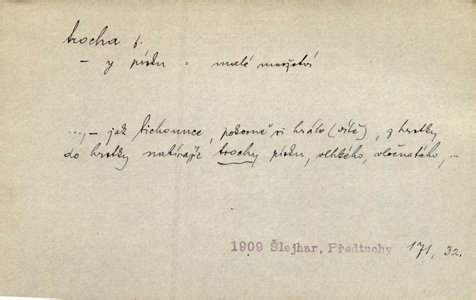 trocha f.
– y písku = malé množství
..., – jak tichounce, pokorně si hrálo (dítě), z hrstky
do hrstky natírajíc trochy písku, vlhkého, vločnatého, ...
1909 Šlejhar, Předtuchy 171, 32.